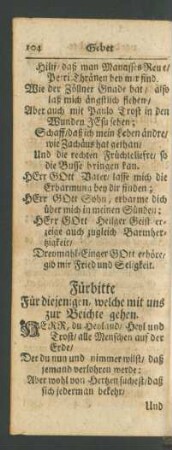 104 Gebet
Hilff, daß man Manasses Reu e/
Petri Thränen bey mir find.
Wie der Zöllner Gnade bat / also
laß mich ängstlich flehen/
Aber auch mit Paulo Trost in den
Wunden JEsu sehen;
Schaff/daß ich mein Leben ändre/
wie Zachäus hat gethan/
Und die rechten Früchte liefre/ so
die Busse bringen kan.
HErr GOtt Vater/ lasse mich die
Erbarmung bey dir finden;
HErr GOtt Sohn, erbarme dich
über mich in meinen Sünden;
HErr GOtt Heilger Geist er-
zeige auch zugleich Barmher-
tzigkeit/
Dreymahl-Einger GOtt erhöre/
gib mir Fried und Seligkeit.
Fürbitte
Für diejenigen, welche mit uns
zur Beichte gehen.
HERR, du Heyland/ Heyl und
Trost/ alle Menschen auf der
Erde/
Der du nun und nimmer wilst/ daß
jemand verlohren werde:
Aber wohl von Hertzen suchest/daß
sich jederman bekehr/
Und